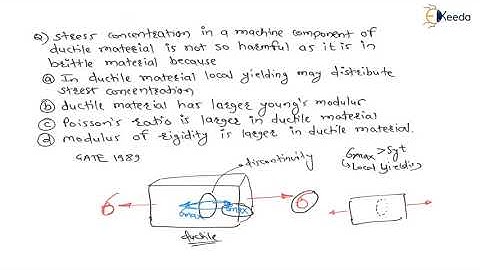 Ekeeda
Q) Stress concentration in a machine component of
ductile material is not so harmful as it is in
brittle material because
ⓐ In ductile material local yielding may distribute
stress concentration
ⓑ ductile material has larger young's modulus
ⓒ Poisson's ratio is larger in ductile material
ⓓ modulus of rigidity is larger in ductile material.
GATE 1989
discontinuity
σmax > Syt
Local yielding
σ
σmax
σmax
σ
ductile